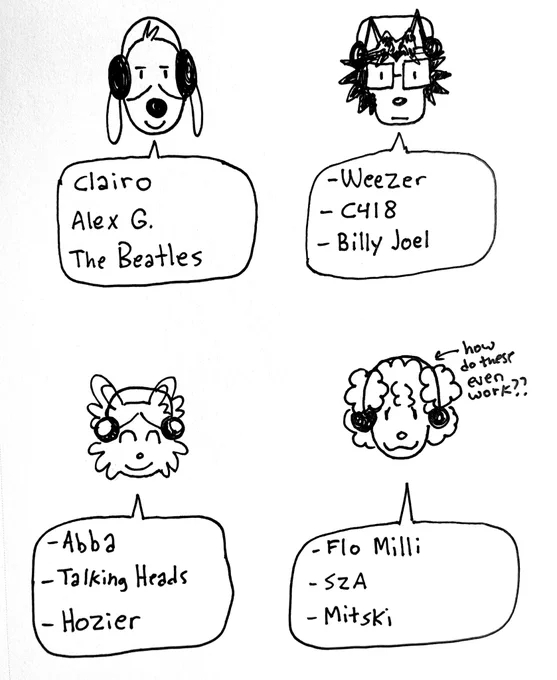 Clairo
Alex G.
The Beatles
-Weezer
- C418
- Billy Joel
how
do these
even
work??
-Abba
-Talking Heads
- Hozier
-Flo Milli
-SZA
-Mitski